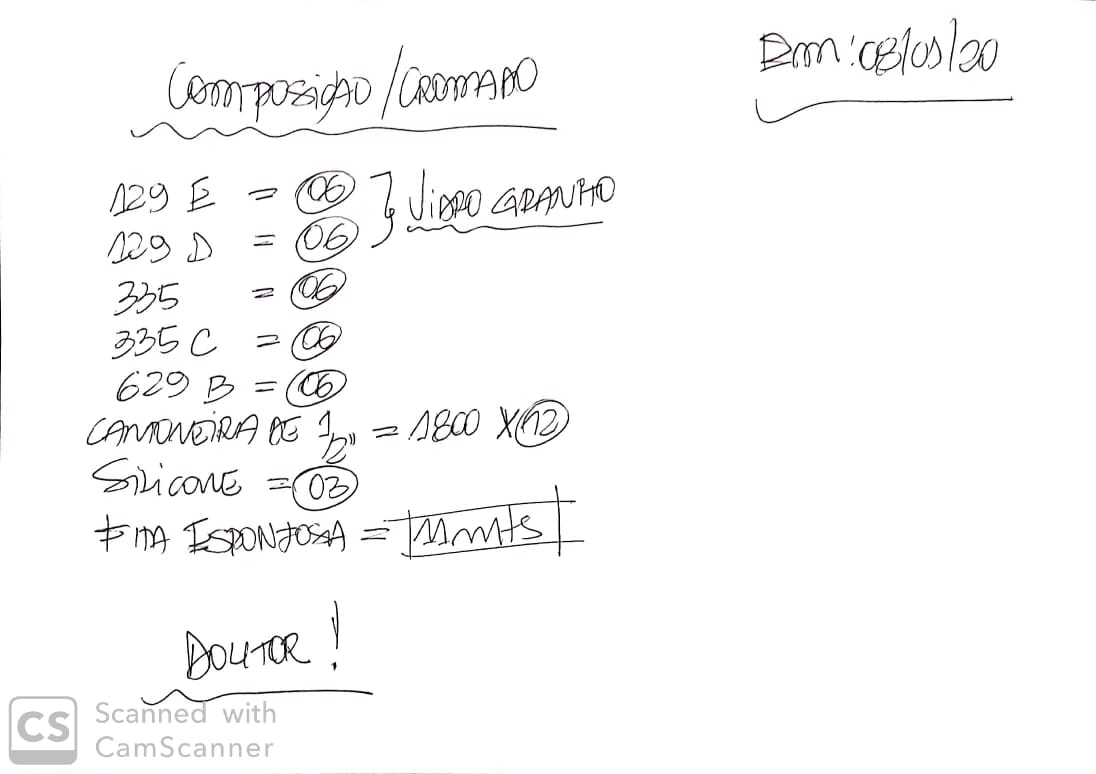 Em: 08/09/20
COMPOSIÇÃO/CROMADO
129 E = 06 } VIDRO GRANITO
129 D = 06
335 = 06
335 C = 06
629 B = 06
CANTONEIRA DE 1/2" = 1800 X 12
SILICONE = 03
FITA ESPONJOSA = 11 mts
DOUTOR!
CS Scanned with
CamScanner